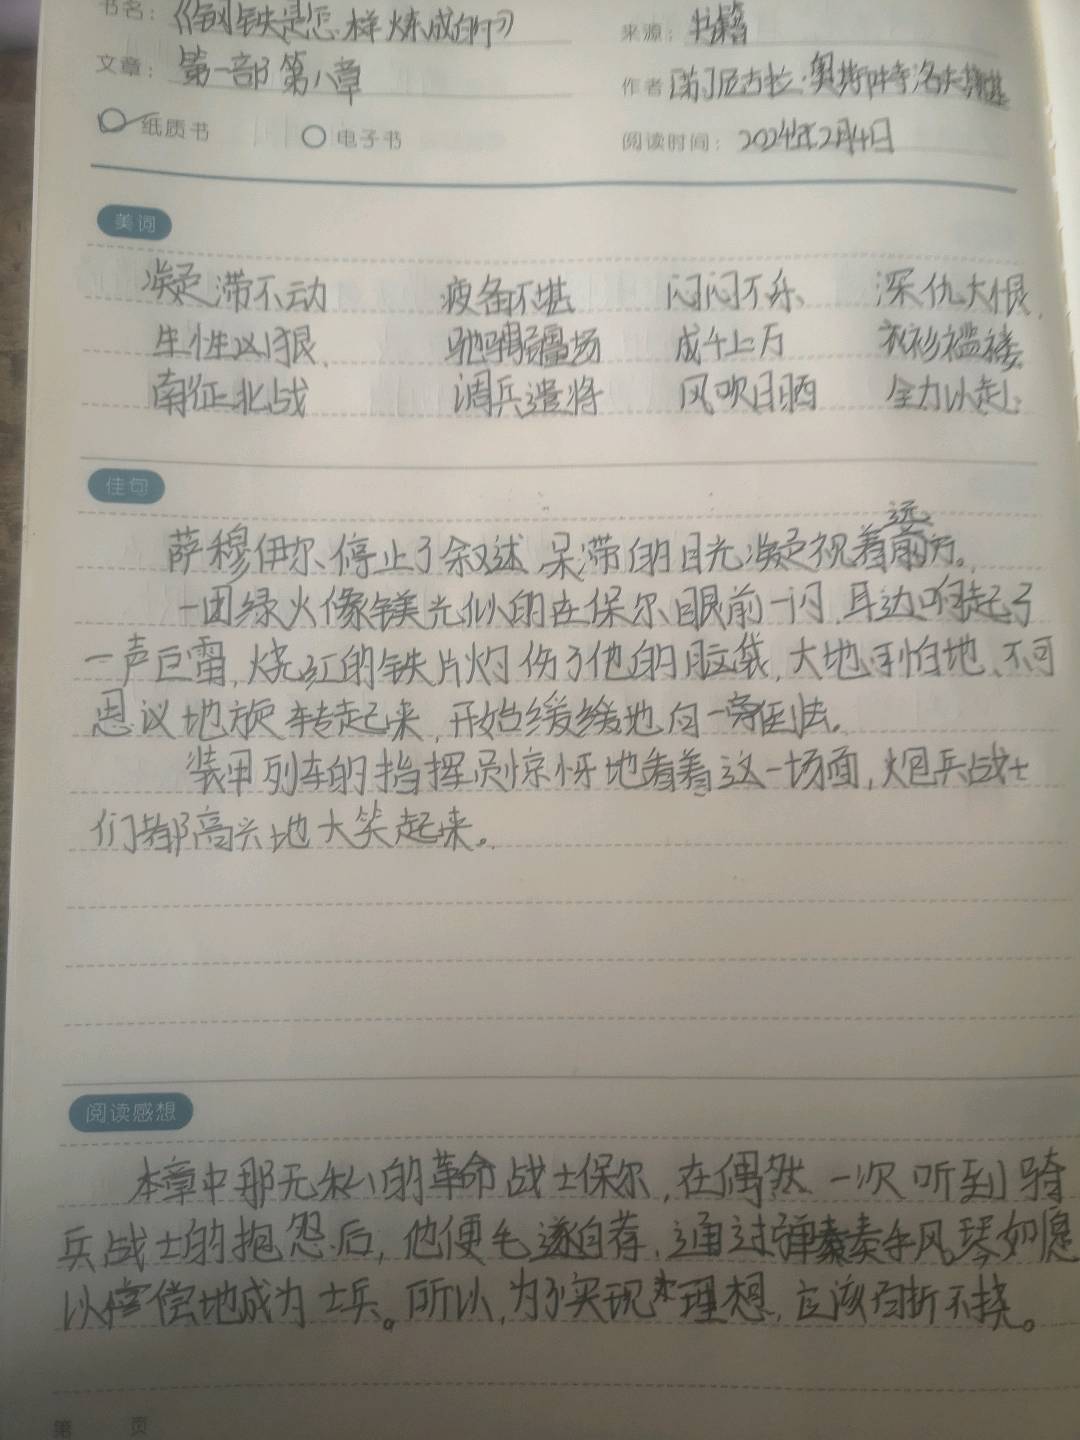 书名：《钢铁是怎样炼成的》 来源：书籍
文章：第一部 第八章 作者 [苏]尼古拉·奥斯特洛夫斯基
纸质书 电子书 阅读时间：2024年2月4日
美词
凝滞不动 疲惫不堪 闷闷不乐 深仇大恨
生性凶狠 驰骋疆场 成千上万 衣衫褴褛
南征北战 调兵遣将 风吹日晒 全力以赴
佳句
萨穆伊尔停止了叙述,呆滞的目光凝视着前方。
远
一团绿火像镁光似的在保尔眼前一闪,耳边响起了
一声巨雷,烧红的铁片灼伤了他的脑袋,大地可怕地、不可
思议地旋转起来,开始缓缓地向一旁倒去。
装甲列车的指挥员惊讶地看着这一场面,炮兵战士
们都高兴地大笑起来。
阅读感想
本章中那无私的革命战士保尔,在偶然一次听到骑
兵战士的抱怨后,他便毛遂自荐,通过弹奏手风琴如愿
以偿地成为士兵。所以,为了实现理想,应该百折不挠。
第 页